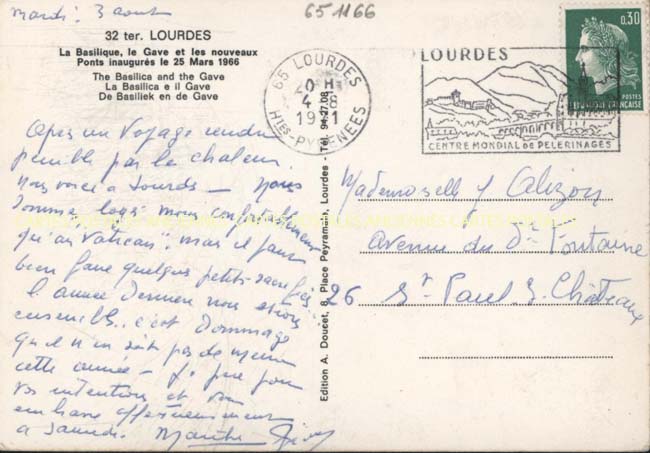 mardi 3 aout
651166
32 ter. LOURDES
La Basilique, le Gave et les nouveaux
Ponts inaugurés le 25 Mars 1966
The Basilica and the Gave
La Basilica e il Gave
De Basiliek en de Gave
65 LOURDES
4-8
1971
Htes-PYRENEES
LOURDES
CENTRE MONDIAL DE PELERINAGES
0,30
POSTES
REPUBLIQUE FRANÇAISE
Apres un Voyage rendu
penible par la chaleur
Nous voici a Lourdes - Nous
sommes logés moins confortablement
qu'au Vatican, mais il faut
bien faire quelques petits sacrifices
l'année derniere nous etions
ensemble, c'est dommage
qu'il n'en soit pas de meme
cette année - Je prie pour
vos intentions et vous
embrasse affectueusement
a Samedi. Marthe
Edition A. Doucet, 8, Place Peyramale, Lourdes - Tél. 94.27.08
Mademoiselle J Alizon
avenue du Dr Fontaine
26 St Paul 3 Châteaux